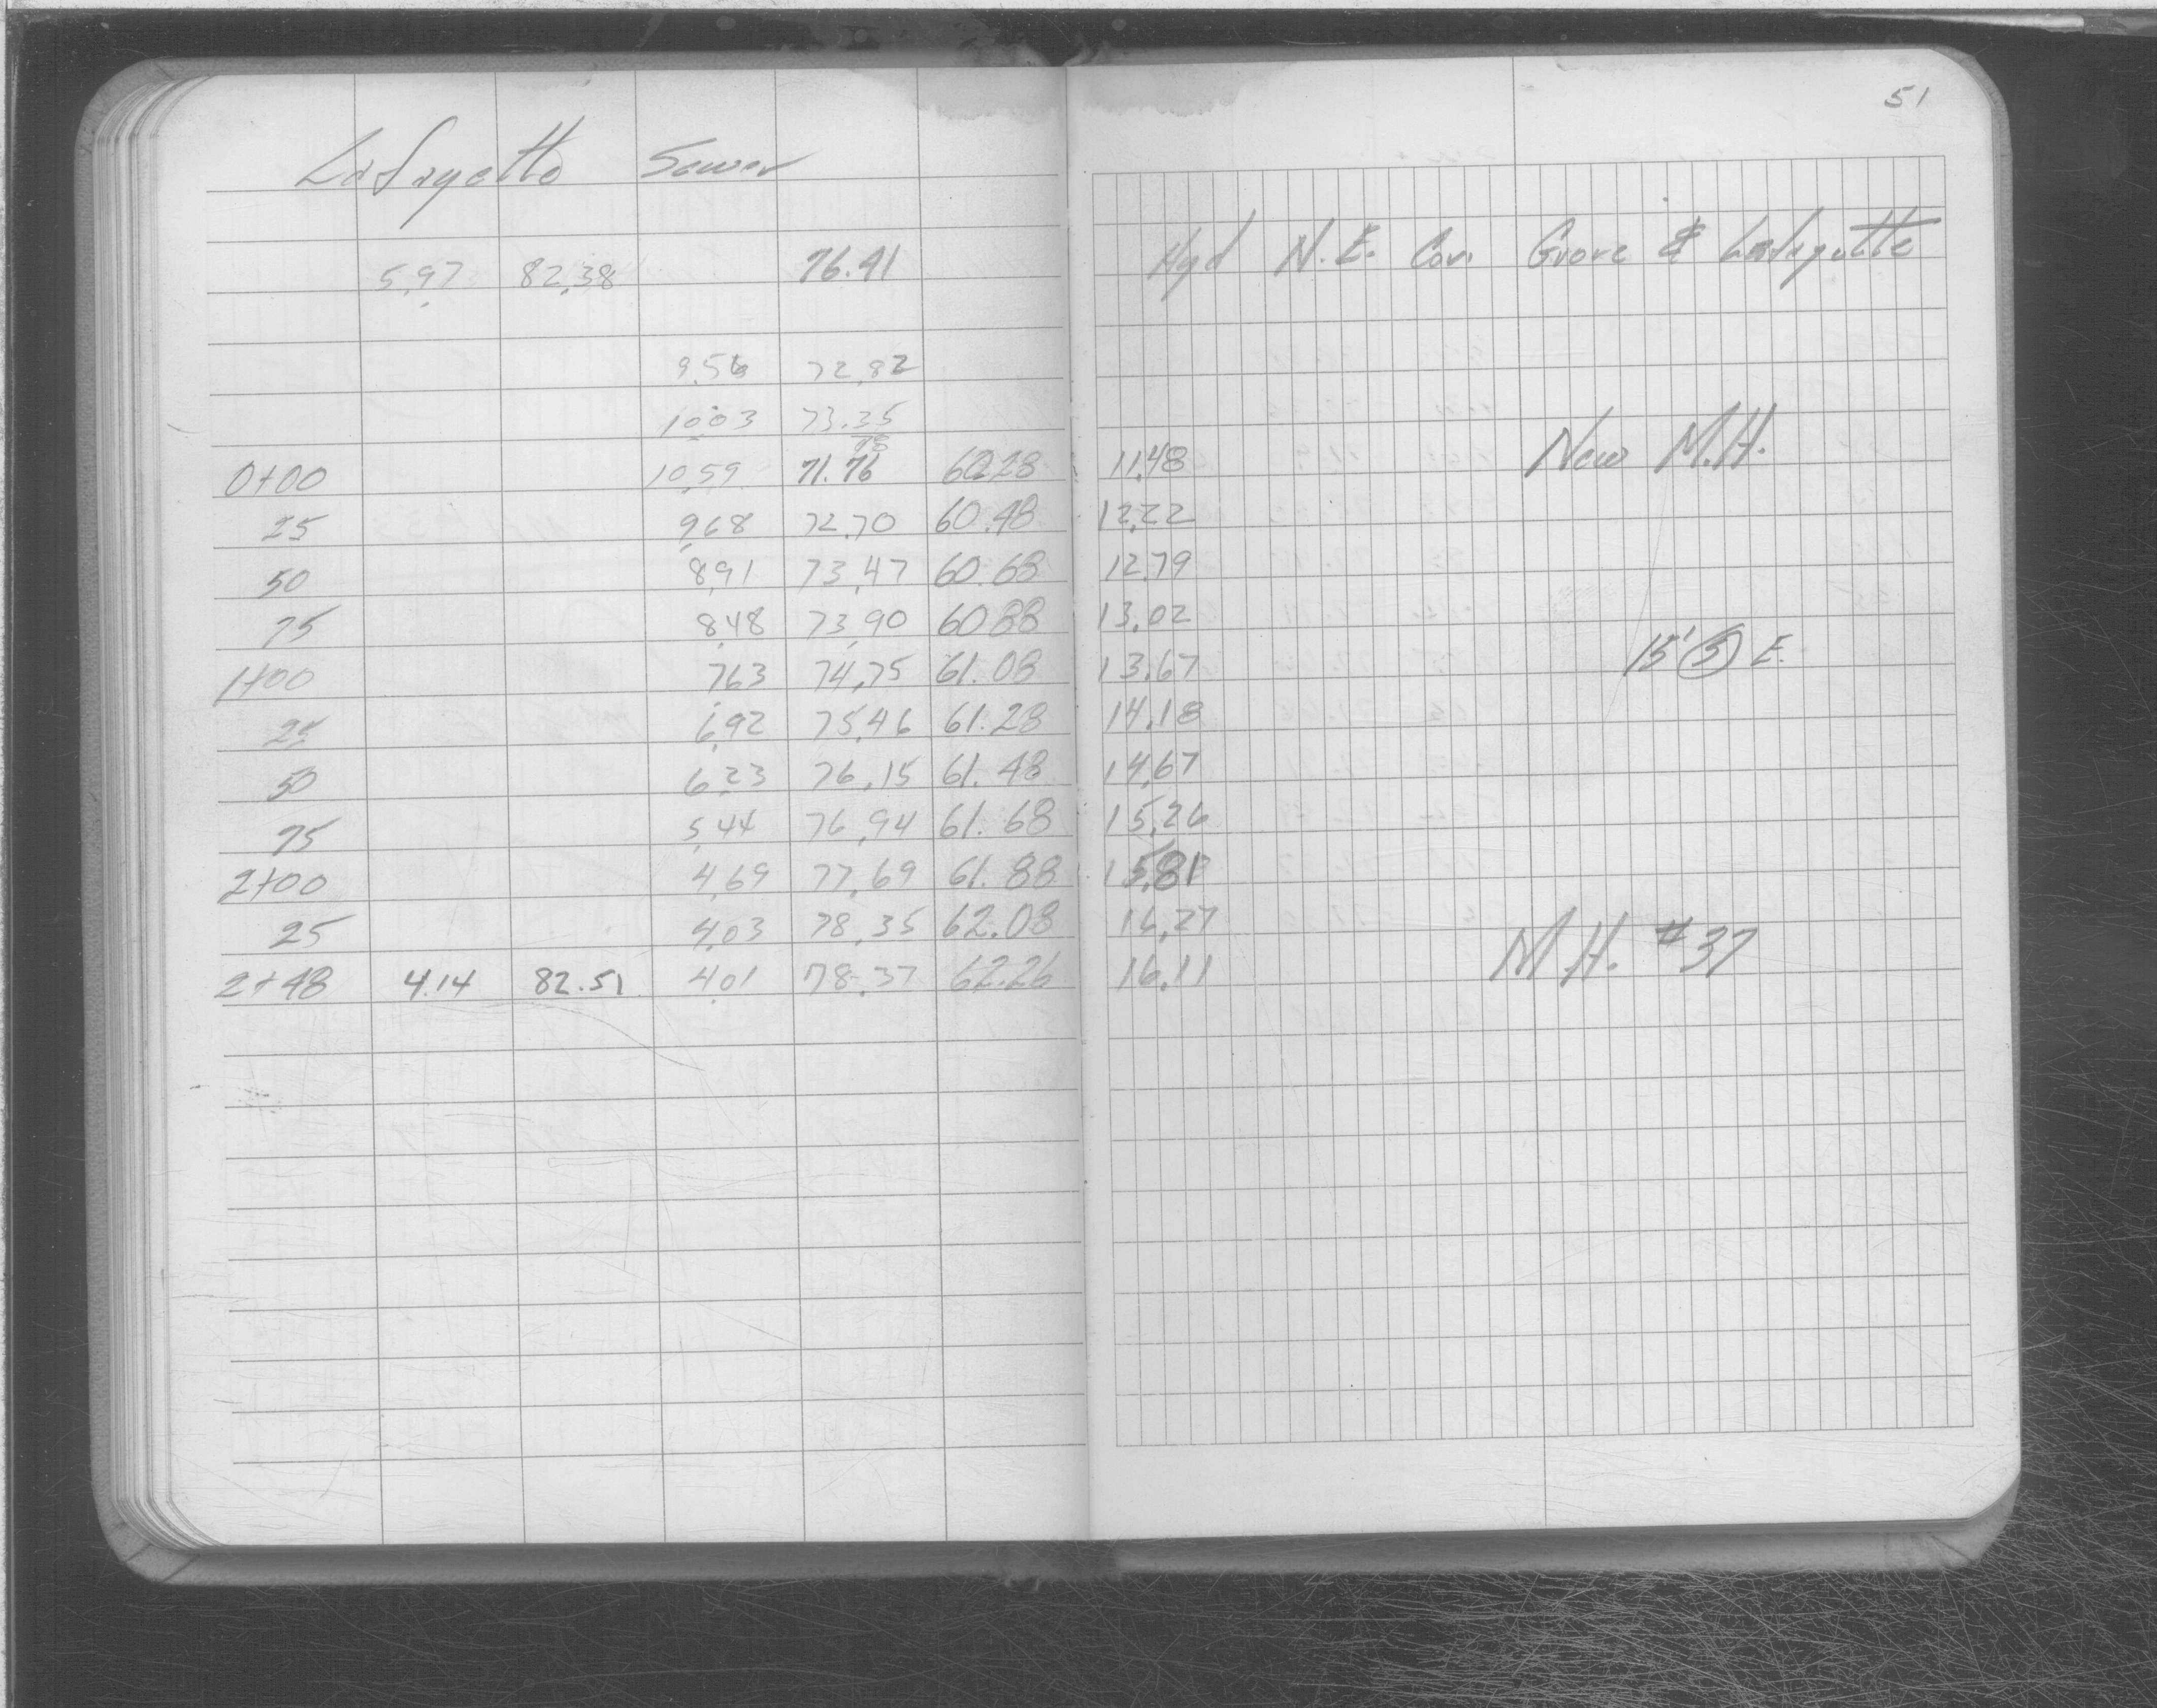 51
Lafayette Sewer
5.97 82.38 76.41 Hyd N.E. Cor. Grove & Lafayette
9.56 72.82
10.03 73.35
0+00 10.59 71.76 60.28 11.48 New M.H.
25 9.68 72.70 60.48 12.22
50 8.91 73.47 60.68 12.79
75 8.48 73.90 60.88 13.02
1+00 7.63 74.75 61.08 13.67 15' (S) E.
25 6.92 75.46 61.28 14.18
50 6.23 76.15 61.48 14.67
75 5.44 76.94 61.68 15.26
2+00 4.69 77.69 61.88 15.81
25 4.03 78.35 62.08 16.27
2+48 4.14 82.51 4.01 78.37 62.26 16.11 M.H. #37